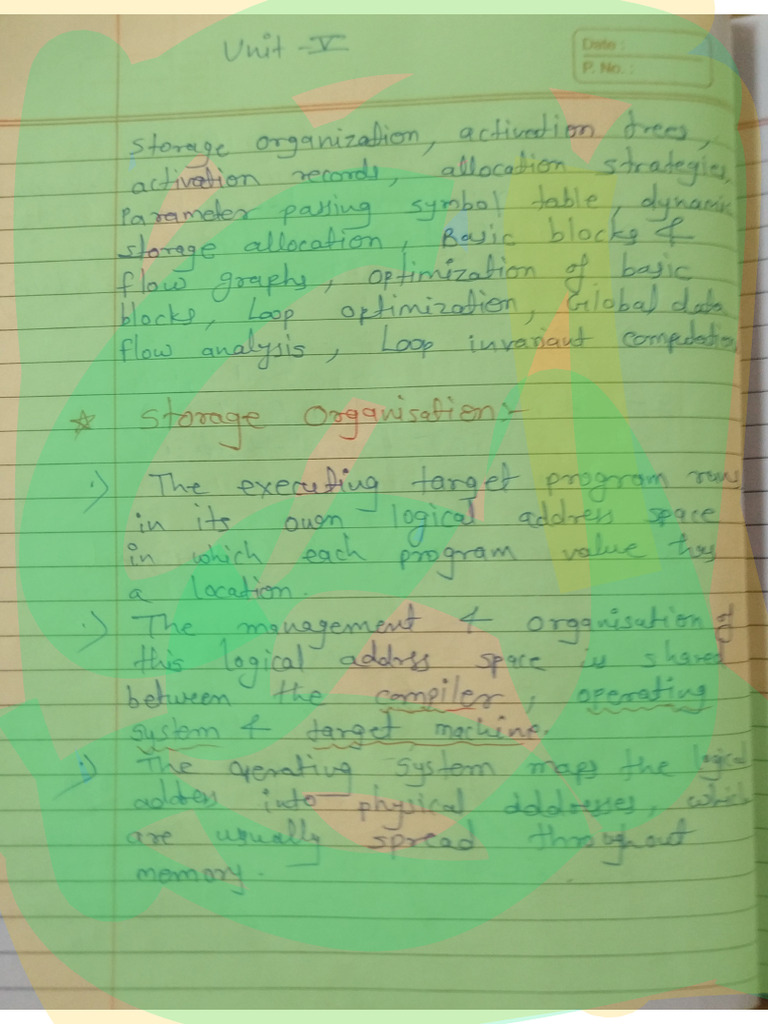 Unit - V
Date :
P. No. :
Storage organization, activation trees,
activation records, allocation strategies,
Parameter passing symbol table, dynamic
storage allocation, Basic blocks &
flow graphs, optimization of basic
blocks, Loop optimization, Global data
flow analysis, Loop invariant computation
☆ Storage Organisation :-
·) The executing target program runs
in its own logical address space
in which each program value has
a location.
·) The management & organisation of
this logical address space is shared
between the compiler, operating
system & target machine.
·) The operating system maps the logical
address into physical addresses, which
are usually spread throughout
memory.